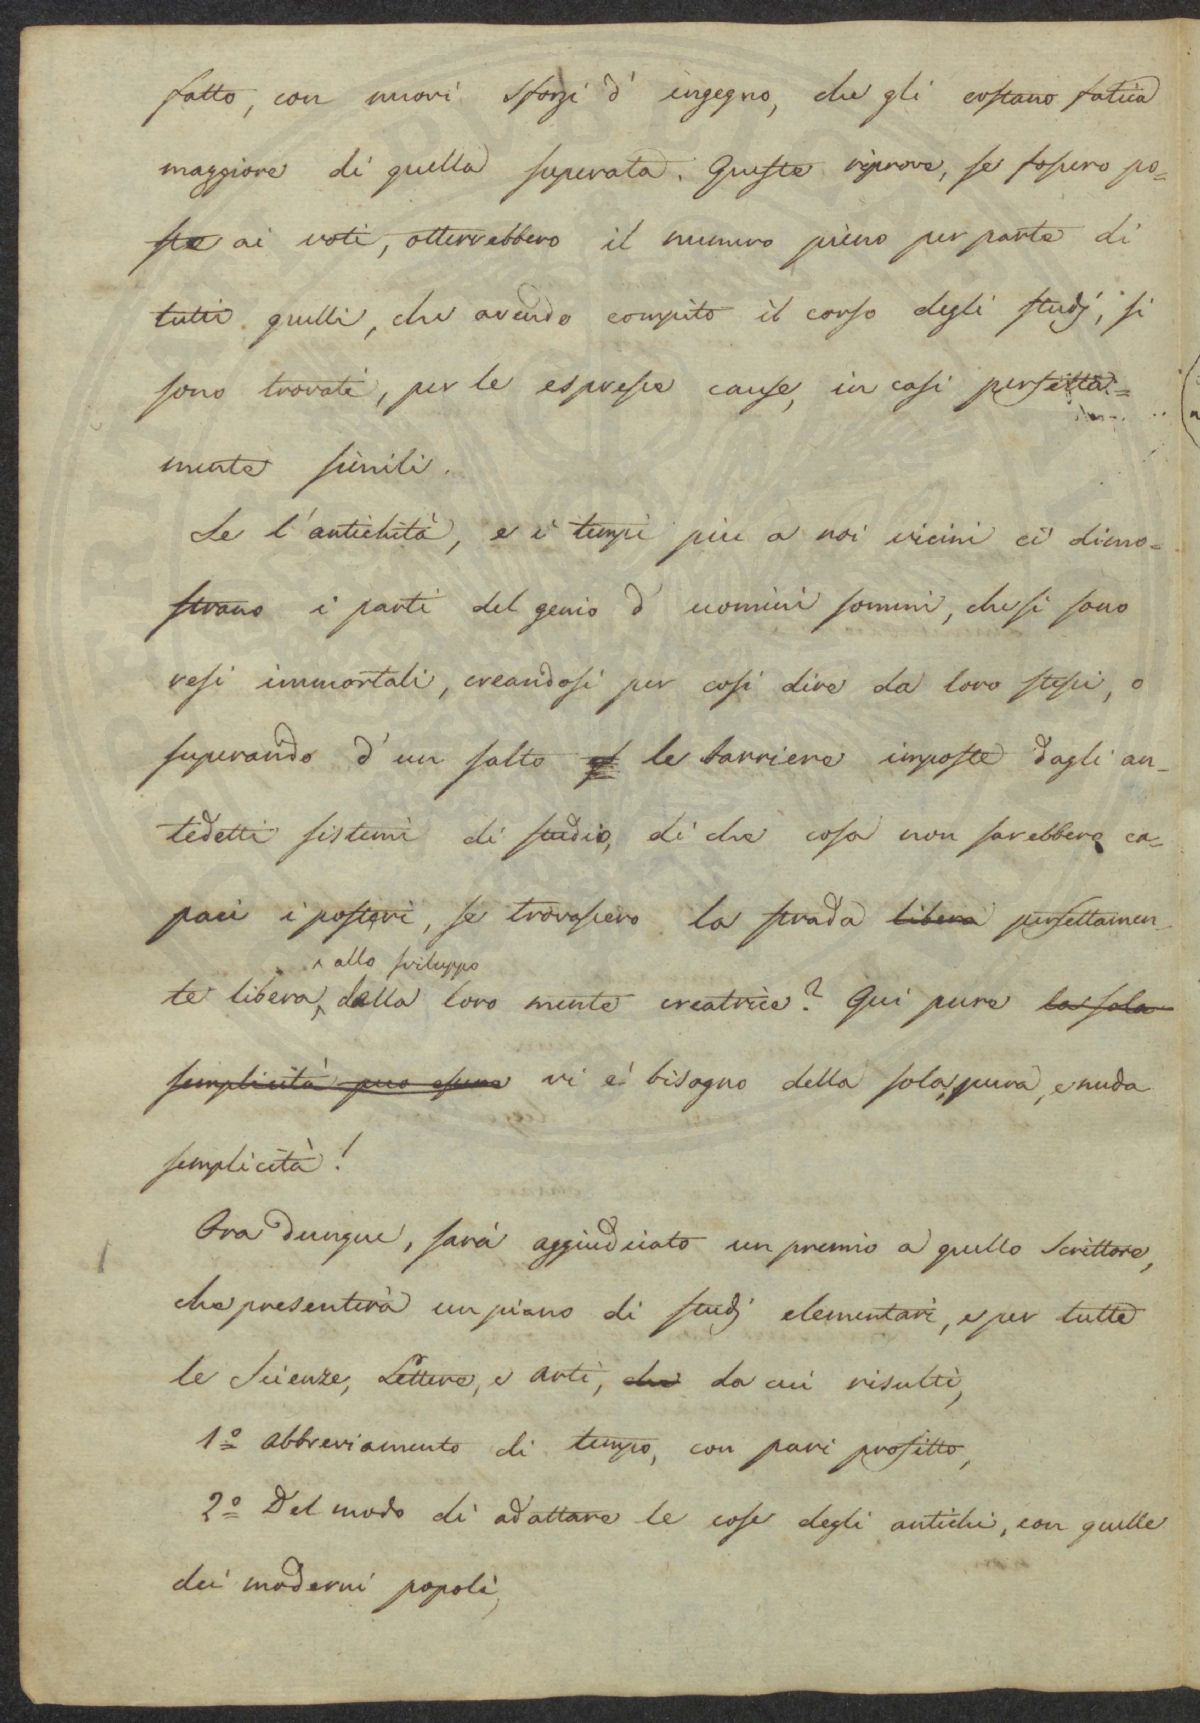 fatto, con nuovi sforzi d'ingegno, che gli costano fatica
maggiore di quella superata. Queste riprove, se fossero po=
ste ai voti, otterrebbero il numero pieno per parte di
tutti quelli, che avendo compito il corso degli studj, si
sono trovati, per le espresse cause, in casi perfetta=
mente simili.
Se l'antichità, e i tempi piu a noi vicini ci dimo=
strano i parti del genio d'uomini sommi, che si sono
resi immortali, creandosi per cosi dire da loro stessi, o
superando d'un salto le barriere imposte dagli an=
tedetti sistemi di studio, di che cosa non sarebbero ca=
paci i posteri, se trovassero la strada libera perfettamen
allo sviluppo
te libera, della loro mente creatrice? Qui pure la sola
semplicità può essere vi é bisogno della sola, pura, e nuda
semplicità!
Ora dunque, sarà aggiudicato un premio a quello Scrittore,
che presenterà un piano di studj elementari, e per tutte
le Scienze, Lettere, e arti, che da cui risulti,
1º abbreviamento di tempo, con pari profitto,
2º Del modo di adattare le cose degli antichi, con quelle
dei moderni popoli,